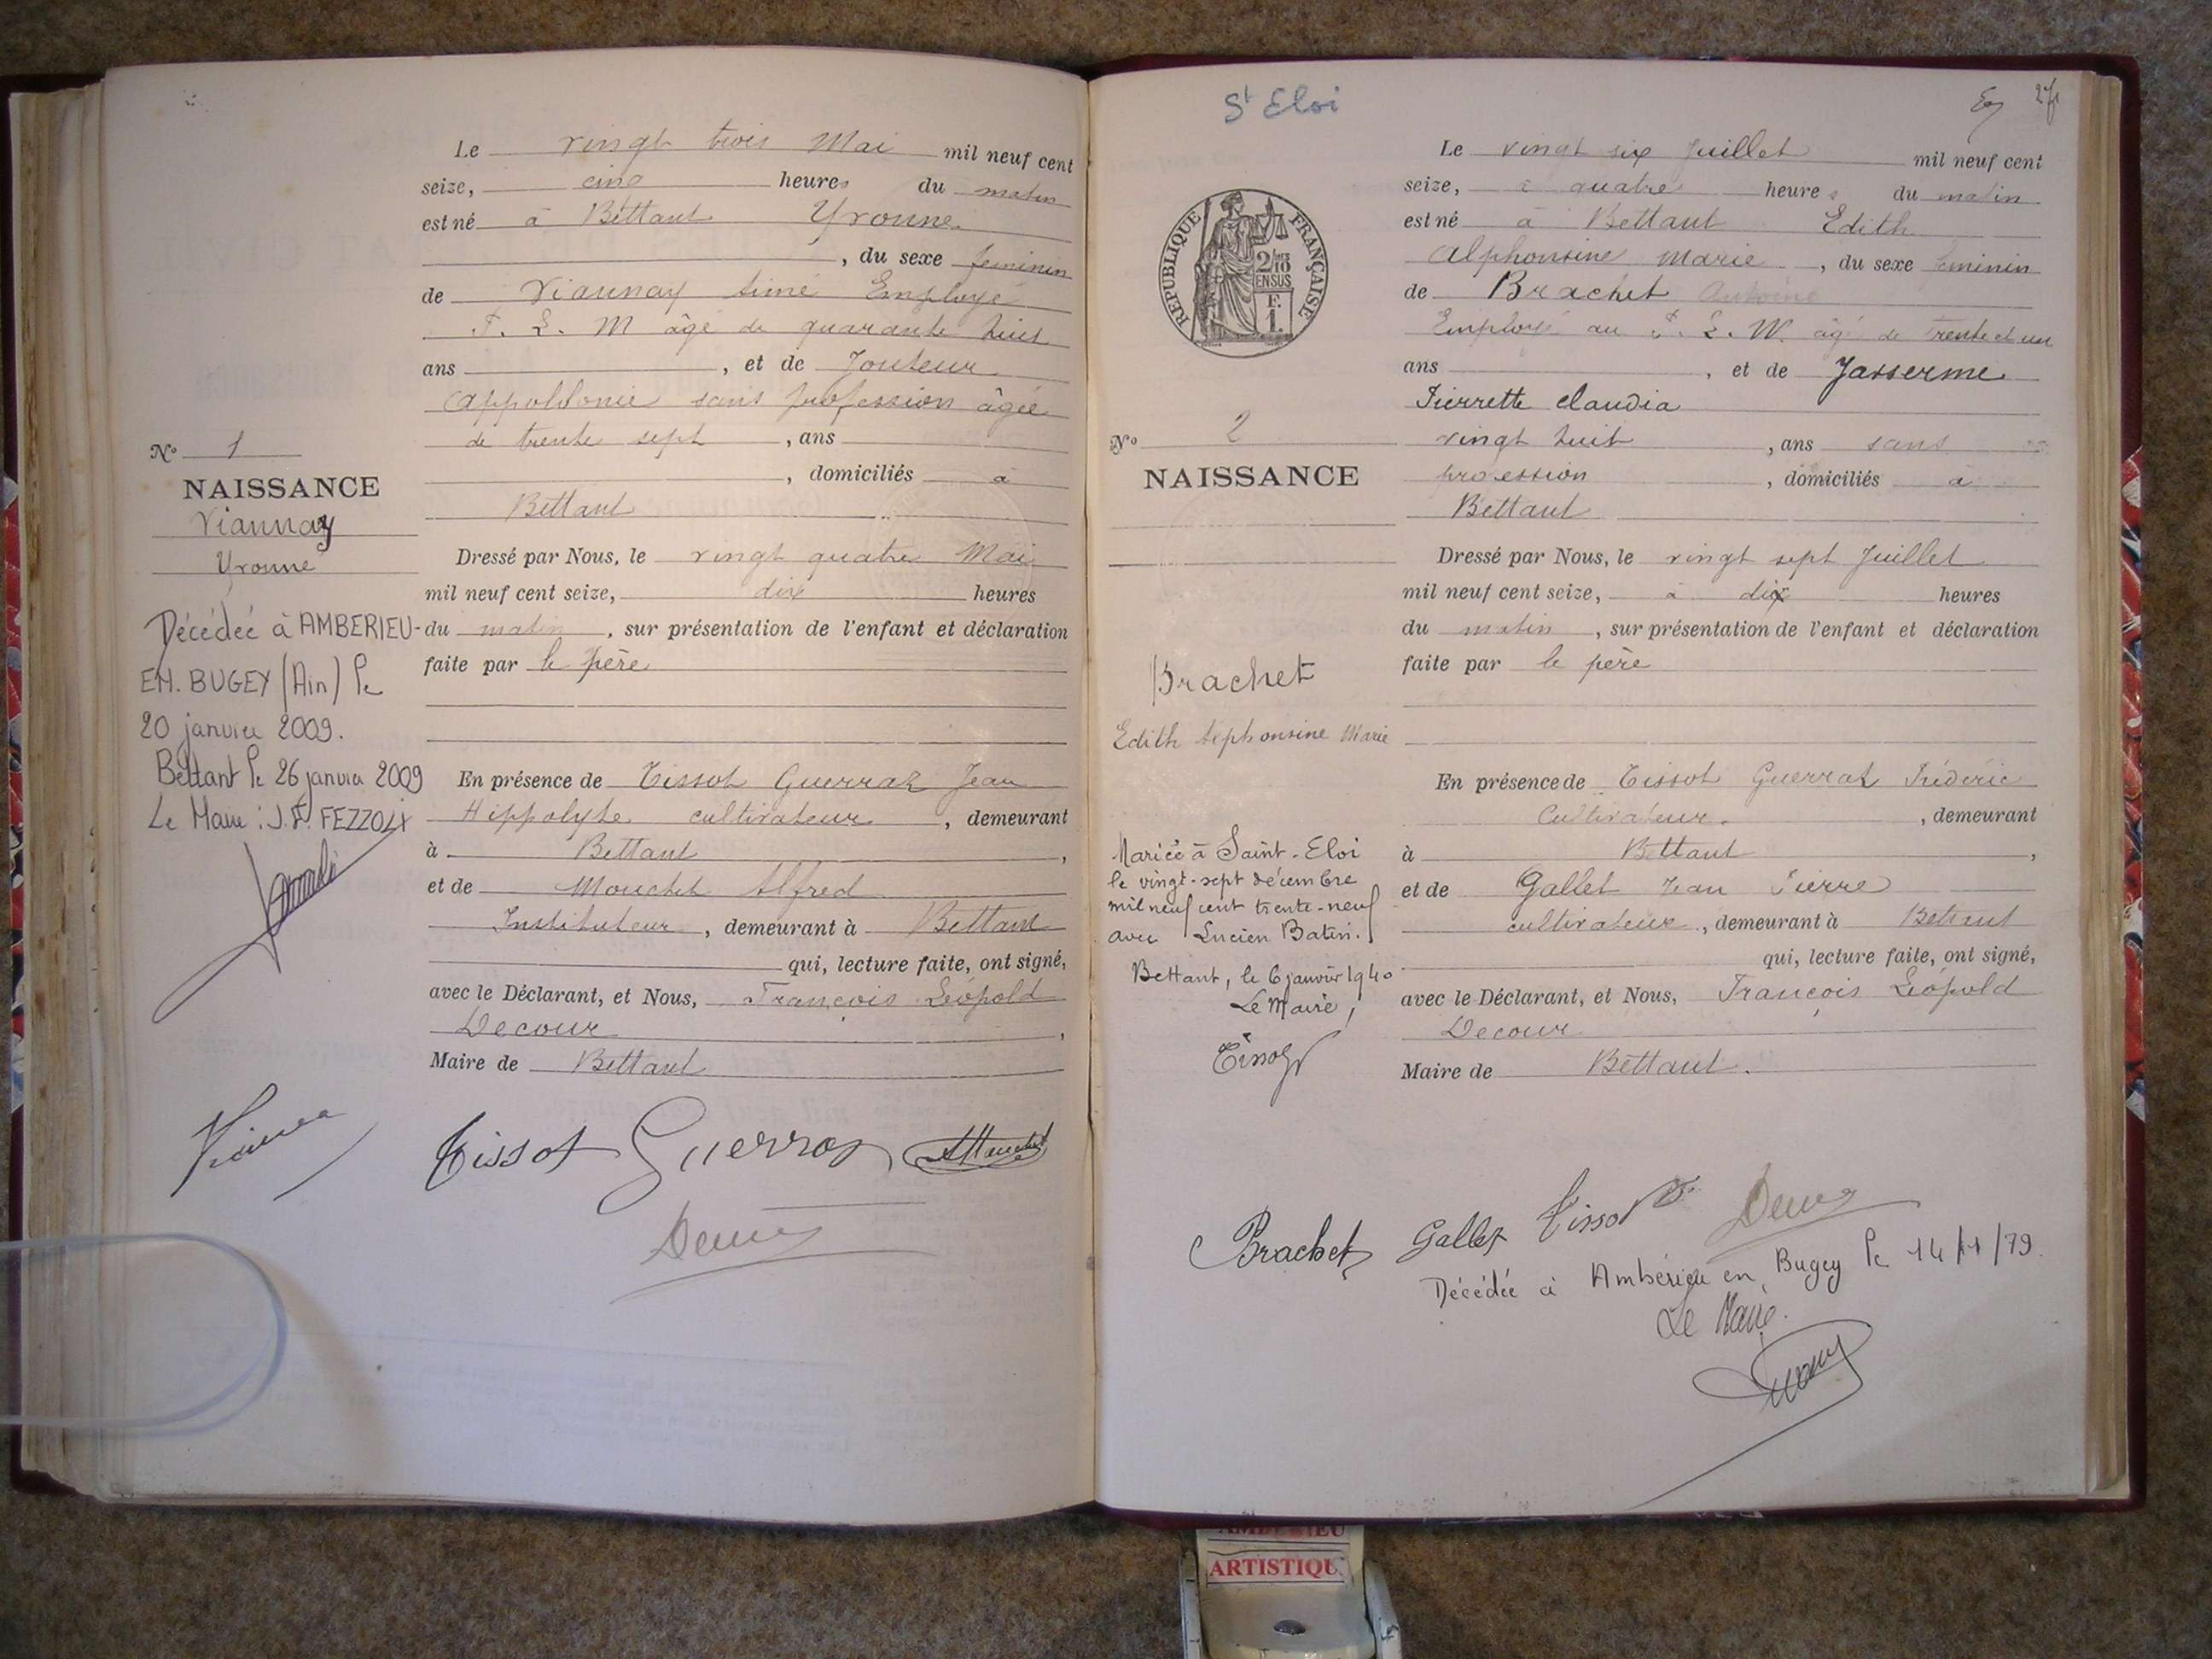 Le vingt trois Mai mil neuf cent
seize, cinq heures du matin
est né à Bettant Yvonne
, du sexe feminin
de Viannay Aimé Employé
P. L. M âgé de quarante huit
ans , et de Jouteur
Appolonie sans profession âgée
de trente sept , ans
, domiciliés à
Bettant
N° 1
NAISSANCE
Viannay
Yvonne
Décédée à AMBERIEU-
EN. BUGEY (Ain) le
20 janvier 2009.
Bettant le 26 janvier 2009
Le Maire : J.F. FEZZOLI
Dressé par Nous, le vingt quatre Mai
mil neuf cent seize, dix heures
du matin , sur présentation de l'enfant et déclaration
faite par le père
En présence de Tissot Guerraz Jean
Hippolyte cultivateur , demeurant
à Bettant ,
et de Mouchet Alfred
Instituteur , demeurant à Bettant
qui, lecture faite, ont signé,
avec le Déclarant, et Nous, François Léopold
Decour ,
Maire de Bettant
Tissot Guerraz
St Eloi
RÉPUBLIQUE FRANÇAISE
2/10
EN SUS
F.
1.
Le vingt six Juillet mil neuf cent
seize, à quatre heures du matin
est né à Bettant Edith
Alphonsine Marie , du sexe feminin
de Brachet Antoine
Employé au P. L. M. âgé de trente et un
ans , et de Jasserme
Pierrette Claudia
vingt huit , ans sans
profession , domiciliés à
Bettant
N° 2
NAISSANCE
Brachet
Edith Alphonsine Marie
Mariée à Saint-Eloi
le vingt-sept décembre
mil neuf cent trente-neuf
avec Lucien Batin.
Bettant, le 6 janvier 1940
Le Maire,
Tissot
Dressé par Nous, le vingt sept Juillet
mil neuf cent seize, à dix heures
du matin , sur présentation de l'enfant et déclaration
faite par le père
En présence de Tissot Guerraz Fréderic
Cultivateur. , demeurant
à Bettant ,
et de Gallet Jean Pierre
cultivateur , demeurant à Bettant
qui, lecture faite, ont signé,
avec le Déclarant, et Nous, François Léopold
Decour
Maire de Bettant.
Brachet Gallet Tissot
Décédée à Ambérieu en Bugey le 14/11/79.
Le Maire.
ARTISTIQU